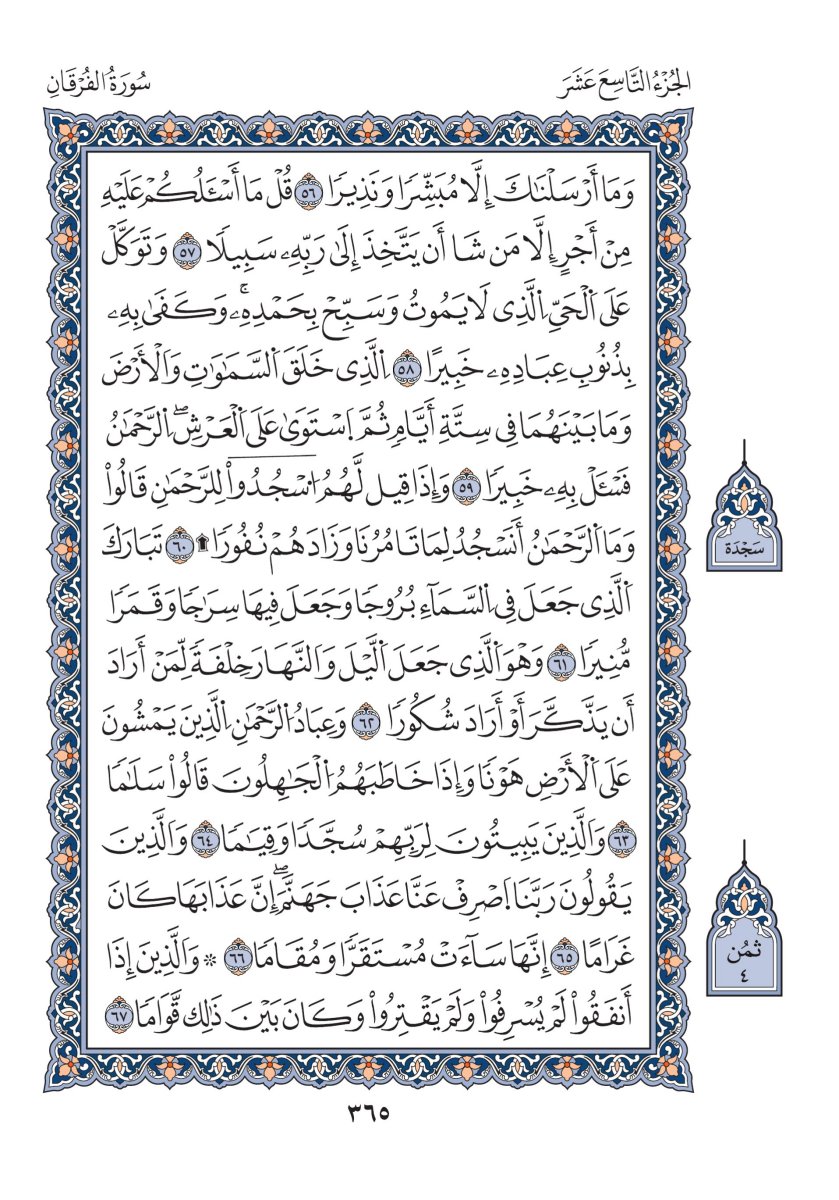 الجُزْءُ التَّاسِعَ عَشَرَ
سُورَةُ الفُرْقَانِ
وَمَا أَرْسَلْنَٰكَ إِلَّا مُبَشِّرًا وَنَذِيرًا ٥٦ قُلْ مَا أَسْـَٔلُكُمْ عَلَيْهِ
مِنْ أَجْرٍ إِلَّا مَن شَا أَن يَتَّخِذَ إِلَىٰ رَبِّهِۦ سَبِيلًا ٥٧ وَتَوَكَّلْ
عَلَى ٱلْحَيِّ ٱلَّذِى لَا يَمُوتُ وَسَبِّحْ بِحَمْدِهِۦۚ وَكَفَىٰ بِهِۦ
بِذُنُوبِ عِبَادِهِۦ خَبِيرًا ٥٨ ٱلَّذِى خَلَقَ ٱلسَّمَٰوَٰتِ وَٱلْأَرْضَ
وَمَا بَيْنَهُمَا فِى سِتَّةِ أَيَّامٍ ثُمَّ ٱسْتَوَىٰ عَلَى ٱلْعَرْشِۖ ٱلرَّحْمَٰنُ
فَسْـَٔلْ بِهِۦ خَبِيرًا ٥٩ وَإِذَا قِيل لَّهُمُ ٱسْجُدُوا۟ لِلرَّحْمَٰنِ قَالُوا۟
وَمَا ٱلرَّحْمَٰنُ أَنَسْجُدُ لِمَا تَامُرُنَا وَزَادَهُمْ نُفُورًا ۩ ٦٠ تَبَارَكَ
ٱلَّذِى جَعَلَ فِى ٱلسَّمَآءِ بُرُوجًا وَجَعَلَ فِيهَا سِرَٰجًا وَقَمَرًا
مُّنِيرًا ٦١ وَهْوَ ٱلَّذِى جَعَلَ ٱلَّيْلَ وَٱلنَّهَارَ خِلْفَةً لِّمَنْ أَرَادَ
أَن يَذَّكَّرَ أَوْ أَرَادَ شُكُورًا ٦٢ وَعِبَادُ ٱلرَّحْمَٰنِ ٱلَّذِينَ يَمْشُونَ
عَلَى ٱلْأَرْضِ هَوْنًا وَإِذَا خَاطَبَهُمُ ٱلْجَٰهِلُونَ قَالُوا۟ سَلَٰمًا
٦٣ وَٱلَّذِينَ يَبِيتُونَ لِرَبِّهِمْ سُجَّدًا وَقِيَٰمًا ٦٤ وَٱلَّذِينَ
يَقُولُونَ رَبَّنَا ٱصْرِفْ عَنَّا عَذَابَ جَهَنَّمَۖ إِنَّ عَذَابَهَا كَانَ
غَرَامًا ٦٥ إِنَّهَا سَآءَتْ مُسْتَقَرًّا وَمُقَامًا ٦٦ * وَٱلَّذِينَ إِذَا
أَنفَقُوا۟ لَمْ يُسْرِفُوا۟ وَلَمْ يَقْتِرُوا۟ وَكَانَ بَيْنَ ذَٰلِك قَّوَامًا ٦٧
سَجْدَة
ثمُن
٤
٣٦٥